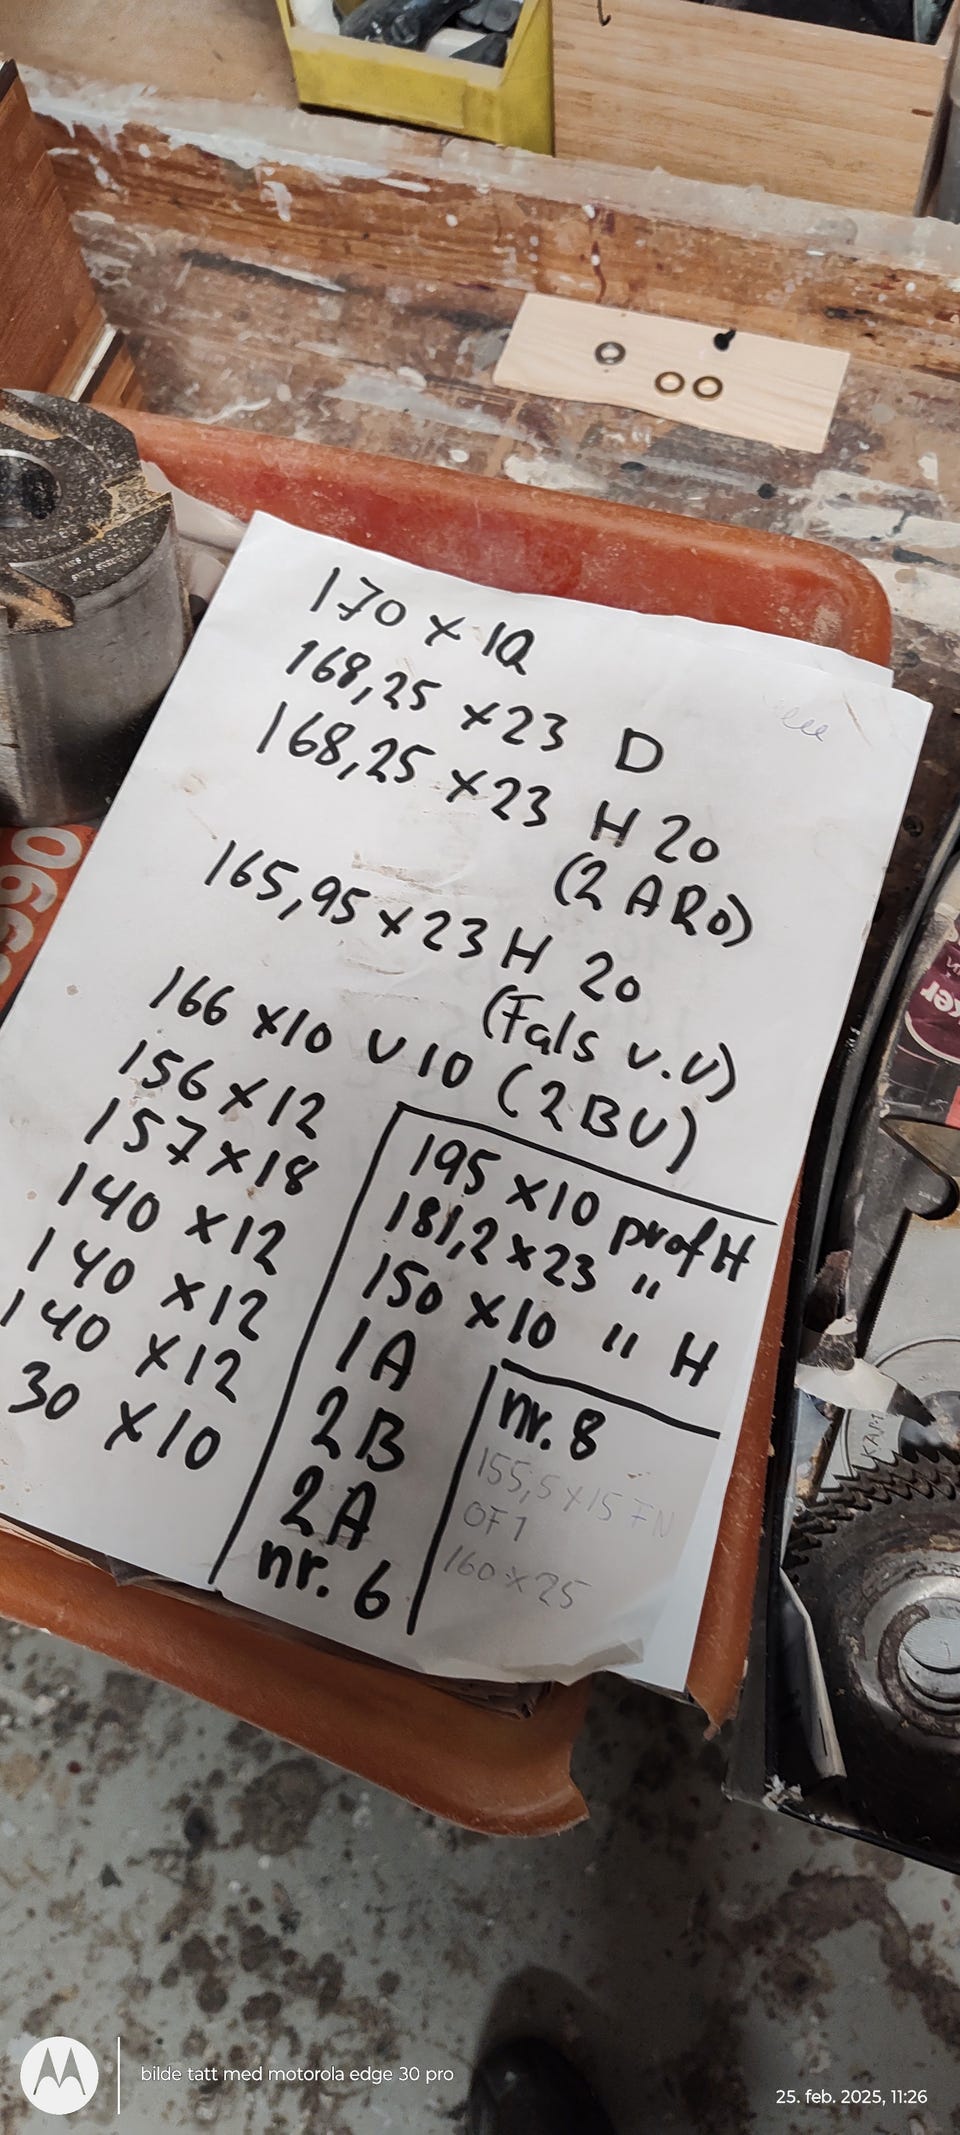 170 x 12
168,25 x 23 D
168,25 x 23 H 20
(2 ARO)
165,95 x 23 H 20
(Fals v.v)
166 x 10 V 10 (2BV)
156 x 12
157 x 18
140 x 12
140 x 12
140 x 12
30 x 10
195 x 10 prof H
181,2 x 23 "
150 x 10 " H
1A
2B
2A
nr. 6
nr. 8
155,5 x 15 FN
OF1
160 x 25
KAM
bilde tatt med motorola edge 30 pro
25. feb. 2025, 11:26